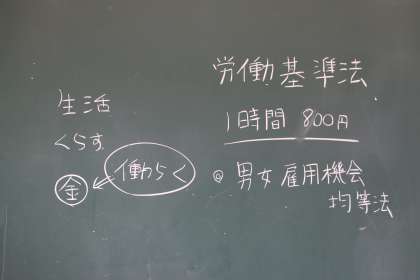 労働基準法
1時間 800円
◎ 男女雇用機会
均等法
生活
くらす
働らく
金